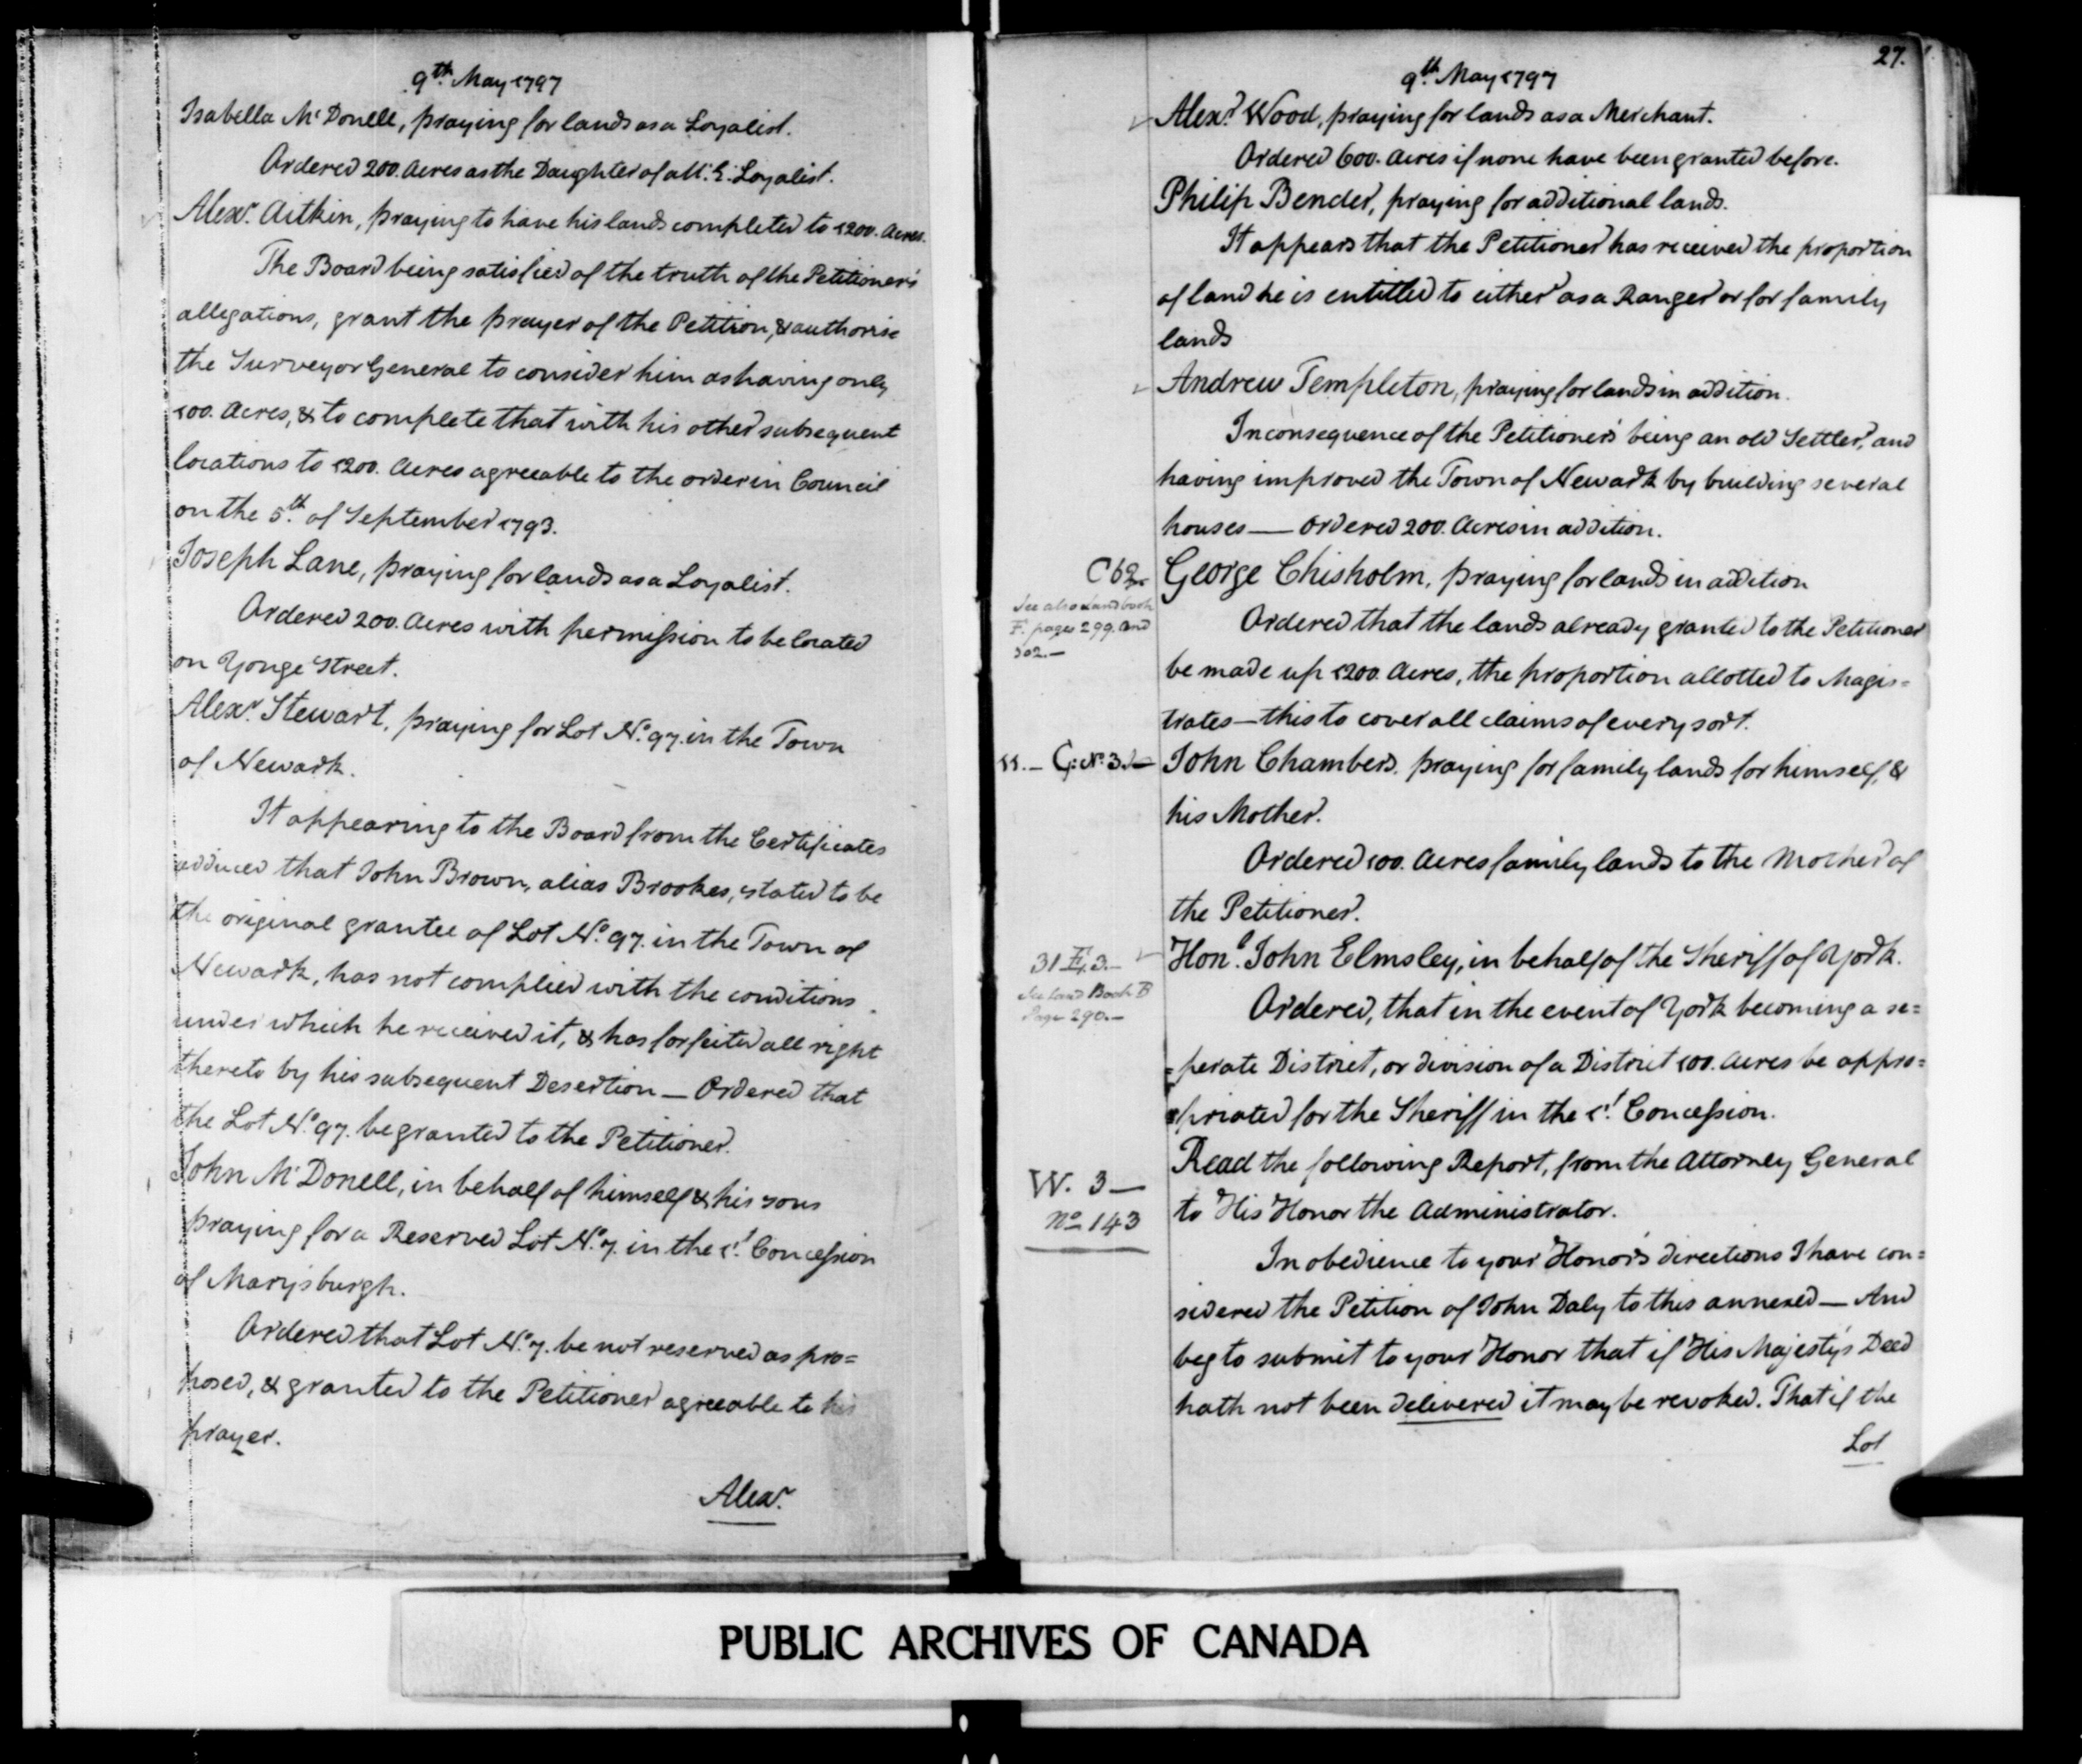 9th. May 1797
Isabella McDonell, praying for lands as a Loyalist.
Ordered 200. Acres as the Daughter of a U. E. Loyalist.
Alexr. Aitkin, praying to have his lands completed to 1200. Acres.
The Board being satisfied of the truth of the Petitioner's
allegations, grant the prayer of the Petition, & authorise
the Surveyor General to consider him as having only
100. Acres, & to complete that with his other subsequent
locations to 1200. Acres agreeable to the order in Council
on the 5th. of September 1793.
Joseph Lane, praying for lands as a Loyalist.
Ordered 200. Acres with permission to be located
on Yonge Street.
Alexr. Stewart, praying for Lot No. 97. in the Town
of Newark.
It appearing to the Board from the Certificates
adduced that John Brown, alias Brookes, stated to be
the original grantee of Lot No. 97. in the Town of
Newark, has not complied with the conditions
under which he received it, & has forfeited all right
thereto by his subsequent Desertion — Ordered that
the Lot No. 97. be granted to the Petitioner.
John McDonell, in behalf of himself & his sons
praying for a Reserved Lot No. 7. in the 1st. Concession
of Marysburgh.
Ordered that Lot No. 7. be not reserved as pro=
posed, & granted to the Petitioner agreeable to his
prayer.
Alexr.
27.
9th. May 1797
Alexr. Wood, praying for lands as a Merchant.
Ordered 600. Acres if none have been granted before.
Philip Bender, praying for additional lands.
It appears that the Petitioner has received the proportion
of land he is entitled to either as a Ranger or for family
lands
Andrew Templeton, praying for lands in addition.
In consequence of the Petitioner's being an old Settler, and
having improved the Town of Newark by building several
houses — Ordered 200. Acres in addition.
C 62. George Chisholm, praying for lands in addition
See also Land book
F. pages 299. and
302. —
Ordered that the lands already granted to the Petitioner
be made up 1200. Acres, the proportion allotted to Magis=
trates — this to cover all claims of every sort.
11. — C: No. 3. — John Chambers. praying for family lands for himself, &
his Mother.
Ordered 100. Acres family lands to the Mother of
the Petitioner.
31 E. 3. — Honl. John Elmsley, in behalf of the Sheriff of York.
See Land Book B
Page 290. —
Ordered, that in the event of York becoming a se=
=perate District, or division of a District 100. Acres be appro=
=priated for the Sheriff in the 1st. Concession.
W. 3 —
No 143
Read the following Report, from the Attorney General
to His Honor the Administrator.
In obedience to your Honor's directions I have con=
sidered the Petition of John Daly to this annexed — And
beg to submit to your Honor that if His Majesty's Deed
hath not been delivered it may be revoked. That if the
Lot
PUBLIC ARCHIVES OF CANADA